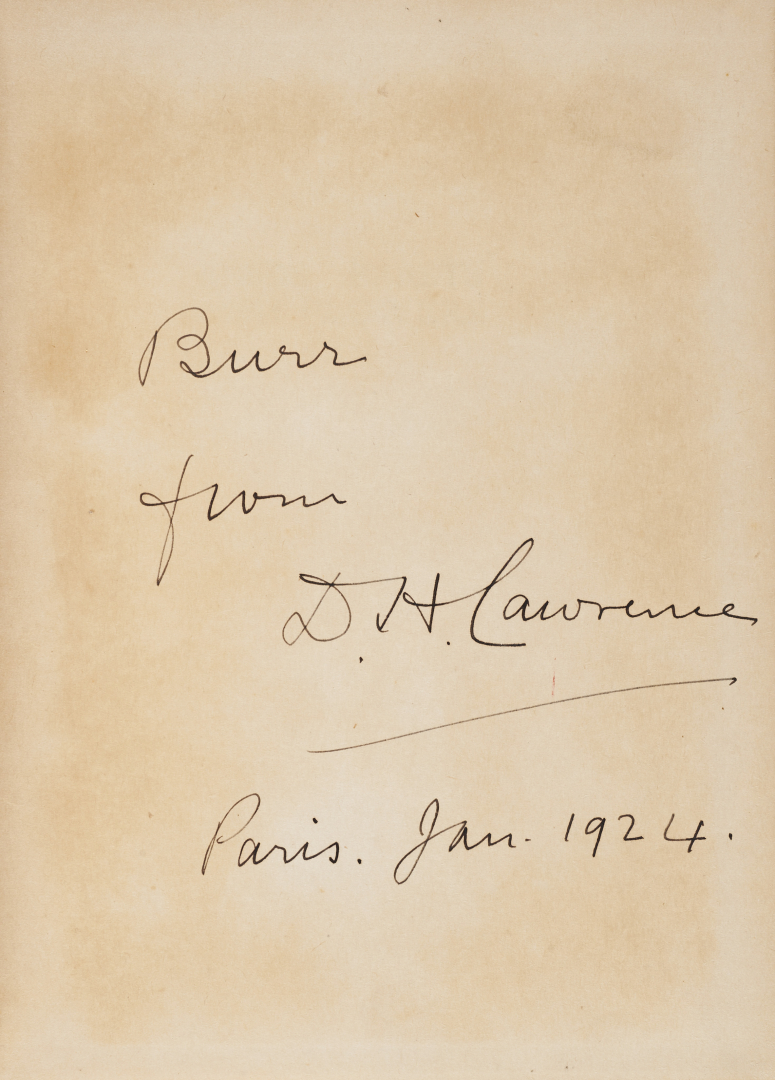 Burr
from
D. H. Lawrence
Paris. Jan. 1924.